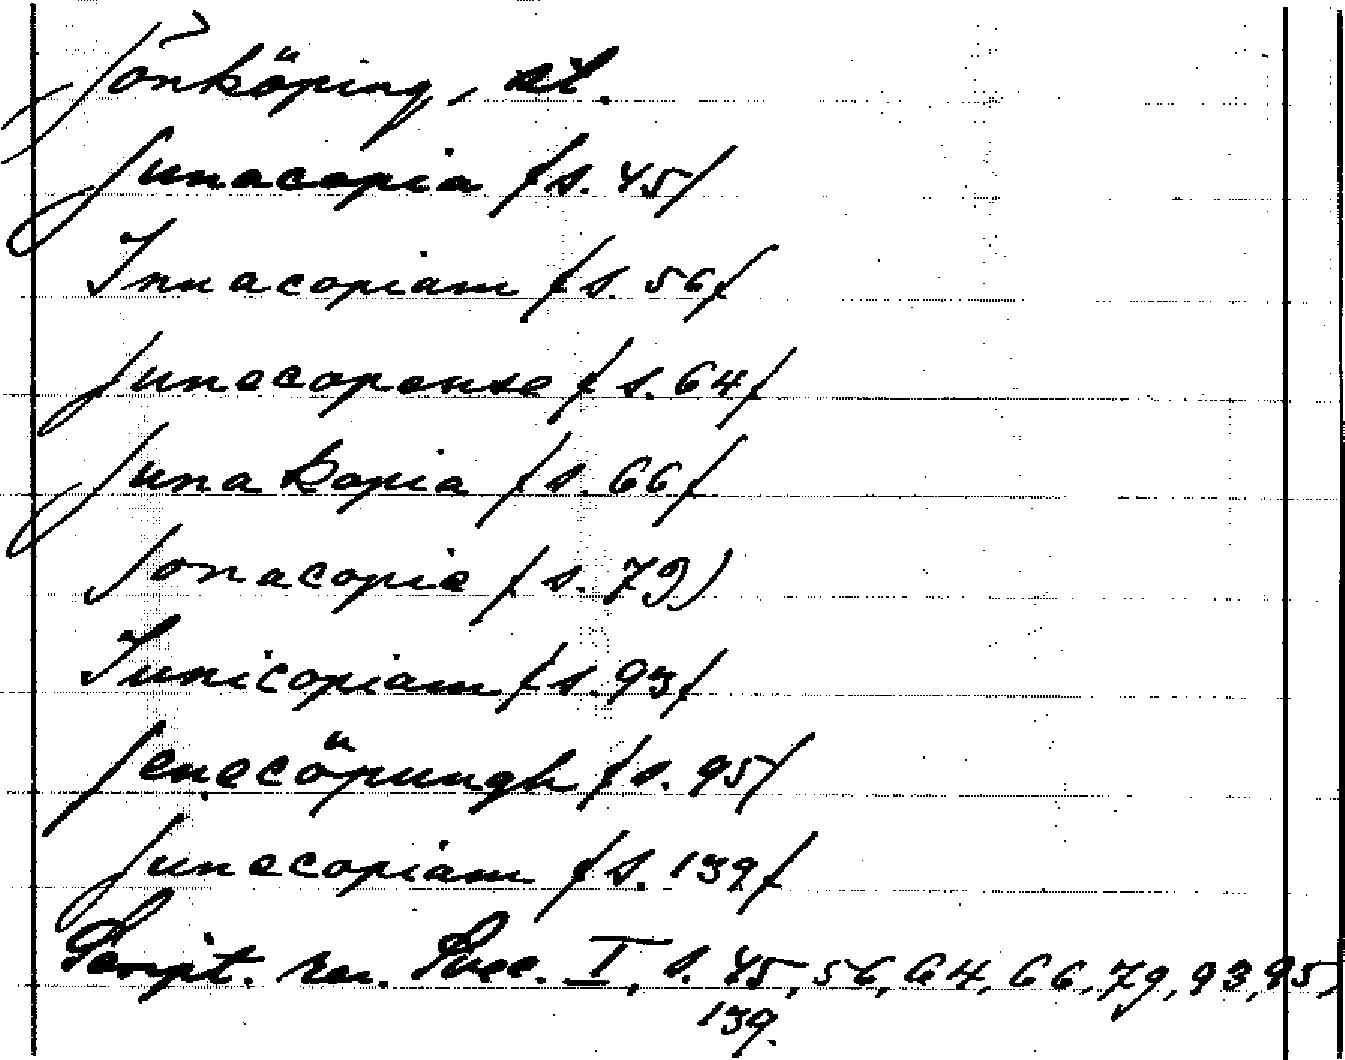 Jönköping, st.
Junacopia (s. 45)
Innacopiam (s. 56)
Junecopense (s. 64)
Juna Kopia (s. 66)
Jonacopie (s. 79)
Junicopiam (s. 93)
Jenecöpungh (s. 95)
Junecopiam (s. 139)
Script. rer. Svec. I, s. 45, 56, 64, 66, 79, 93, 95,
139.